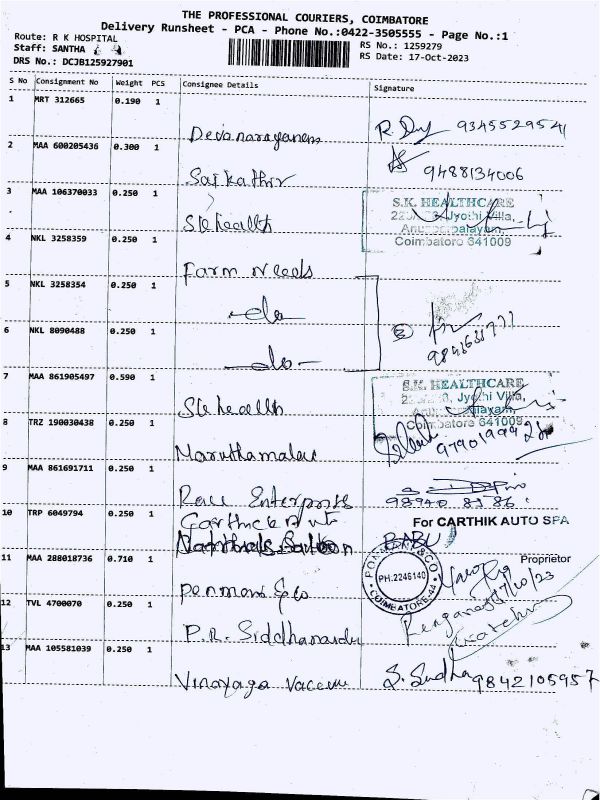 THE PROFESSIONAL COURIERS, COIMBATORE
Delivery Runsheet - PCA - Phone No.:0422-3505555 - Page No.:1
Route: R K HOSPITAL
Staff: SANTHA
DRS No.: DCJB125927901
RS No.: 1259279
RS Date: 17-Oct-2023
S No Consignment No Weight PCS Consignee Details Signature
1 MRT 312665 0.190 1
Devanarayanan 9345529541
2 MAA 600205436 0.300 1
Saikathir 9488134006
3 MAA 106370033 0.250 1
Sk health
S.K. HEALTHCARE
Jyothi Villa,
Coimbatore 641009
4 NKL 3258359 0.250 1
Farm Needs
5 NKL 3258354 0.250 1
-do-
6 NKL 8090488 0.250 1
-do-
7 MAA 861905497 0.590 1
Sk health
S.K. HEALTHCARE
Jyothi Villa,
Coimbatore 641009
8 TRZ 190030438 0.250 1
Maruthamalai
9 MAA 861691711 0.250 1
Race Enterprises
10 TRP 6049794 0.250 1
Carthick Auto
For CARTHIK AUTO SPA
BABU
Proprietor
11 MAA 288018736 0.710 1
Penmani & Co
PH.2246140
COIMBATORE-44
12 TVL 4700070 0.250 1
P.R. Siddhanandu
13 MAA 105581039 0.250 1
Vinayaga Vaccum S. Sudha 9842105957